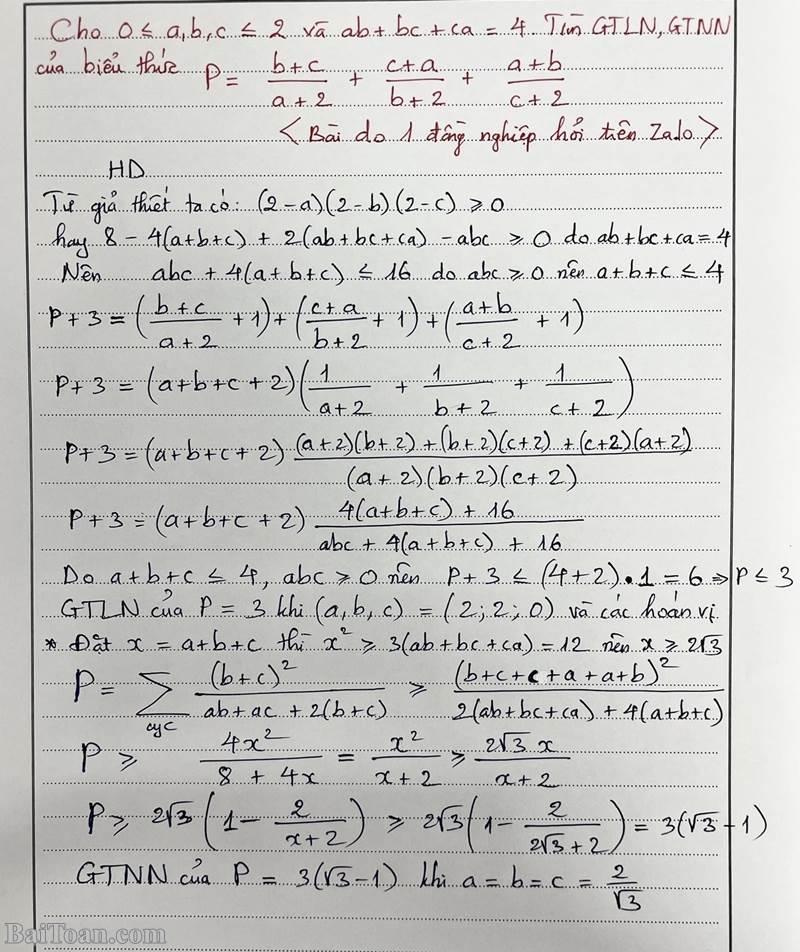 Cho 0 ≤ a,b,c ≤ 2 và ab + bc + ca = 4 Tìm GTLN, GTNN
của biểu thức P = (b+c)/(a+2) + (c+a)/(b+2) + (a+b)/(c+2)
<Bài do 1 đồng nghiệp hỏi trên Zalo>
HD
Từ giả thiết ta có: (2-a)(2-b)(2-c) ≥ 0
hay 8 - 4(a+b+c) + 2(ab+bc+ca) - abc ≥ 0 do ab+bc+ca=4
Nên abc + 4(a+b+c) ≤ 16 do abc ≥ 0 nên a+b+c ≤ 4
P+3 = ((b+c)/(a+2) + 1) + ((c+a)/(b+2) + 1) + ((a+b)/(c+2) + 1)
P+3 = (a+b+c+2)(1/(a+2) + 1/(b+2) + 1/(c+2))
P+3 = (a+b+c+2) ((a+2)(b+2)+(b+2)(c+2)+(c+2)(a+2))/((a+2)(b+2)(c+2))
P+3 = (a+b+c+2) (4(a+b+c)+16)/(abc+4(a+b+c)+16)
Do a+b+c ≤ 4, abc ≥ 0 nên P+3 ≤ (4+2).1 = 6 ⇒ P ≤ 3
GTLN của P = 3 khi (a,b,c) = (2;2;0) và các hoán vị
* Đặt x = a+b+c thì x² ≥ 3(ab+bc+ca) = 12 nên x ≥ 2√3
P = ∑cyc (b+c)²/(ab+ac+2(b+c)) ≥ (b+c+c+a+a+b)²/(2(ab+bc+ca)+4(a+b+c))
P ≥ 4x²/(8+4x) = x²/(x+2) ≥ 2√3 x/(x+2)
P ≥ 2√3 (1 - 2/(x+2)) ≥ 2√3 (1 - 2/(2√3+2)) = 3(√3-1)
GTNN của P = 3(√3-1) khi a = b = c = 2/√3
BaiToan.com